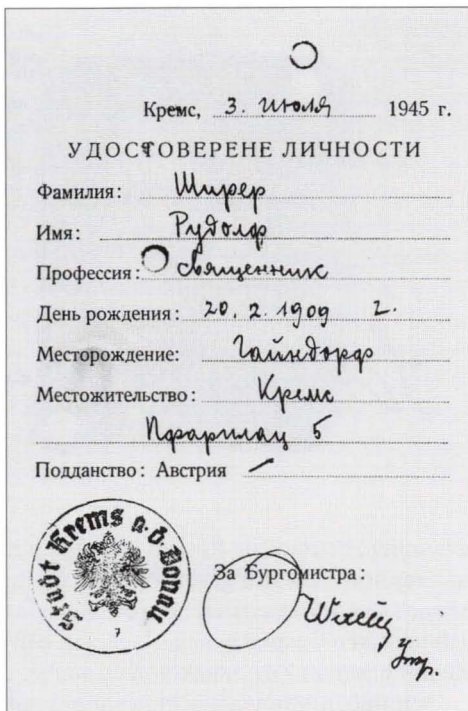 Кремс, 3. июля 1945 г.
УДОСТОВЕРЕНЕ ЛИЧНОСТИ
Фамилия: Ширер
Имя: Рудолф
Профессия: Священник
День рождения: 20. 2. 1909 г.
Месторождение: Гайндорф
Местожительство: Кремс
Пфарплац 5
Подданство: Австрия
Stadt Krems a. d. Donau
7
За Бургомистра: